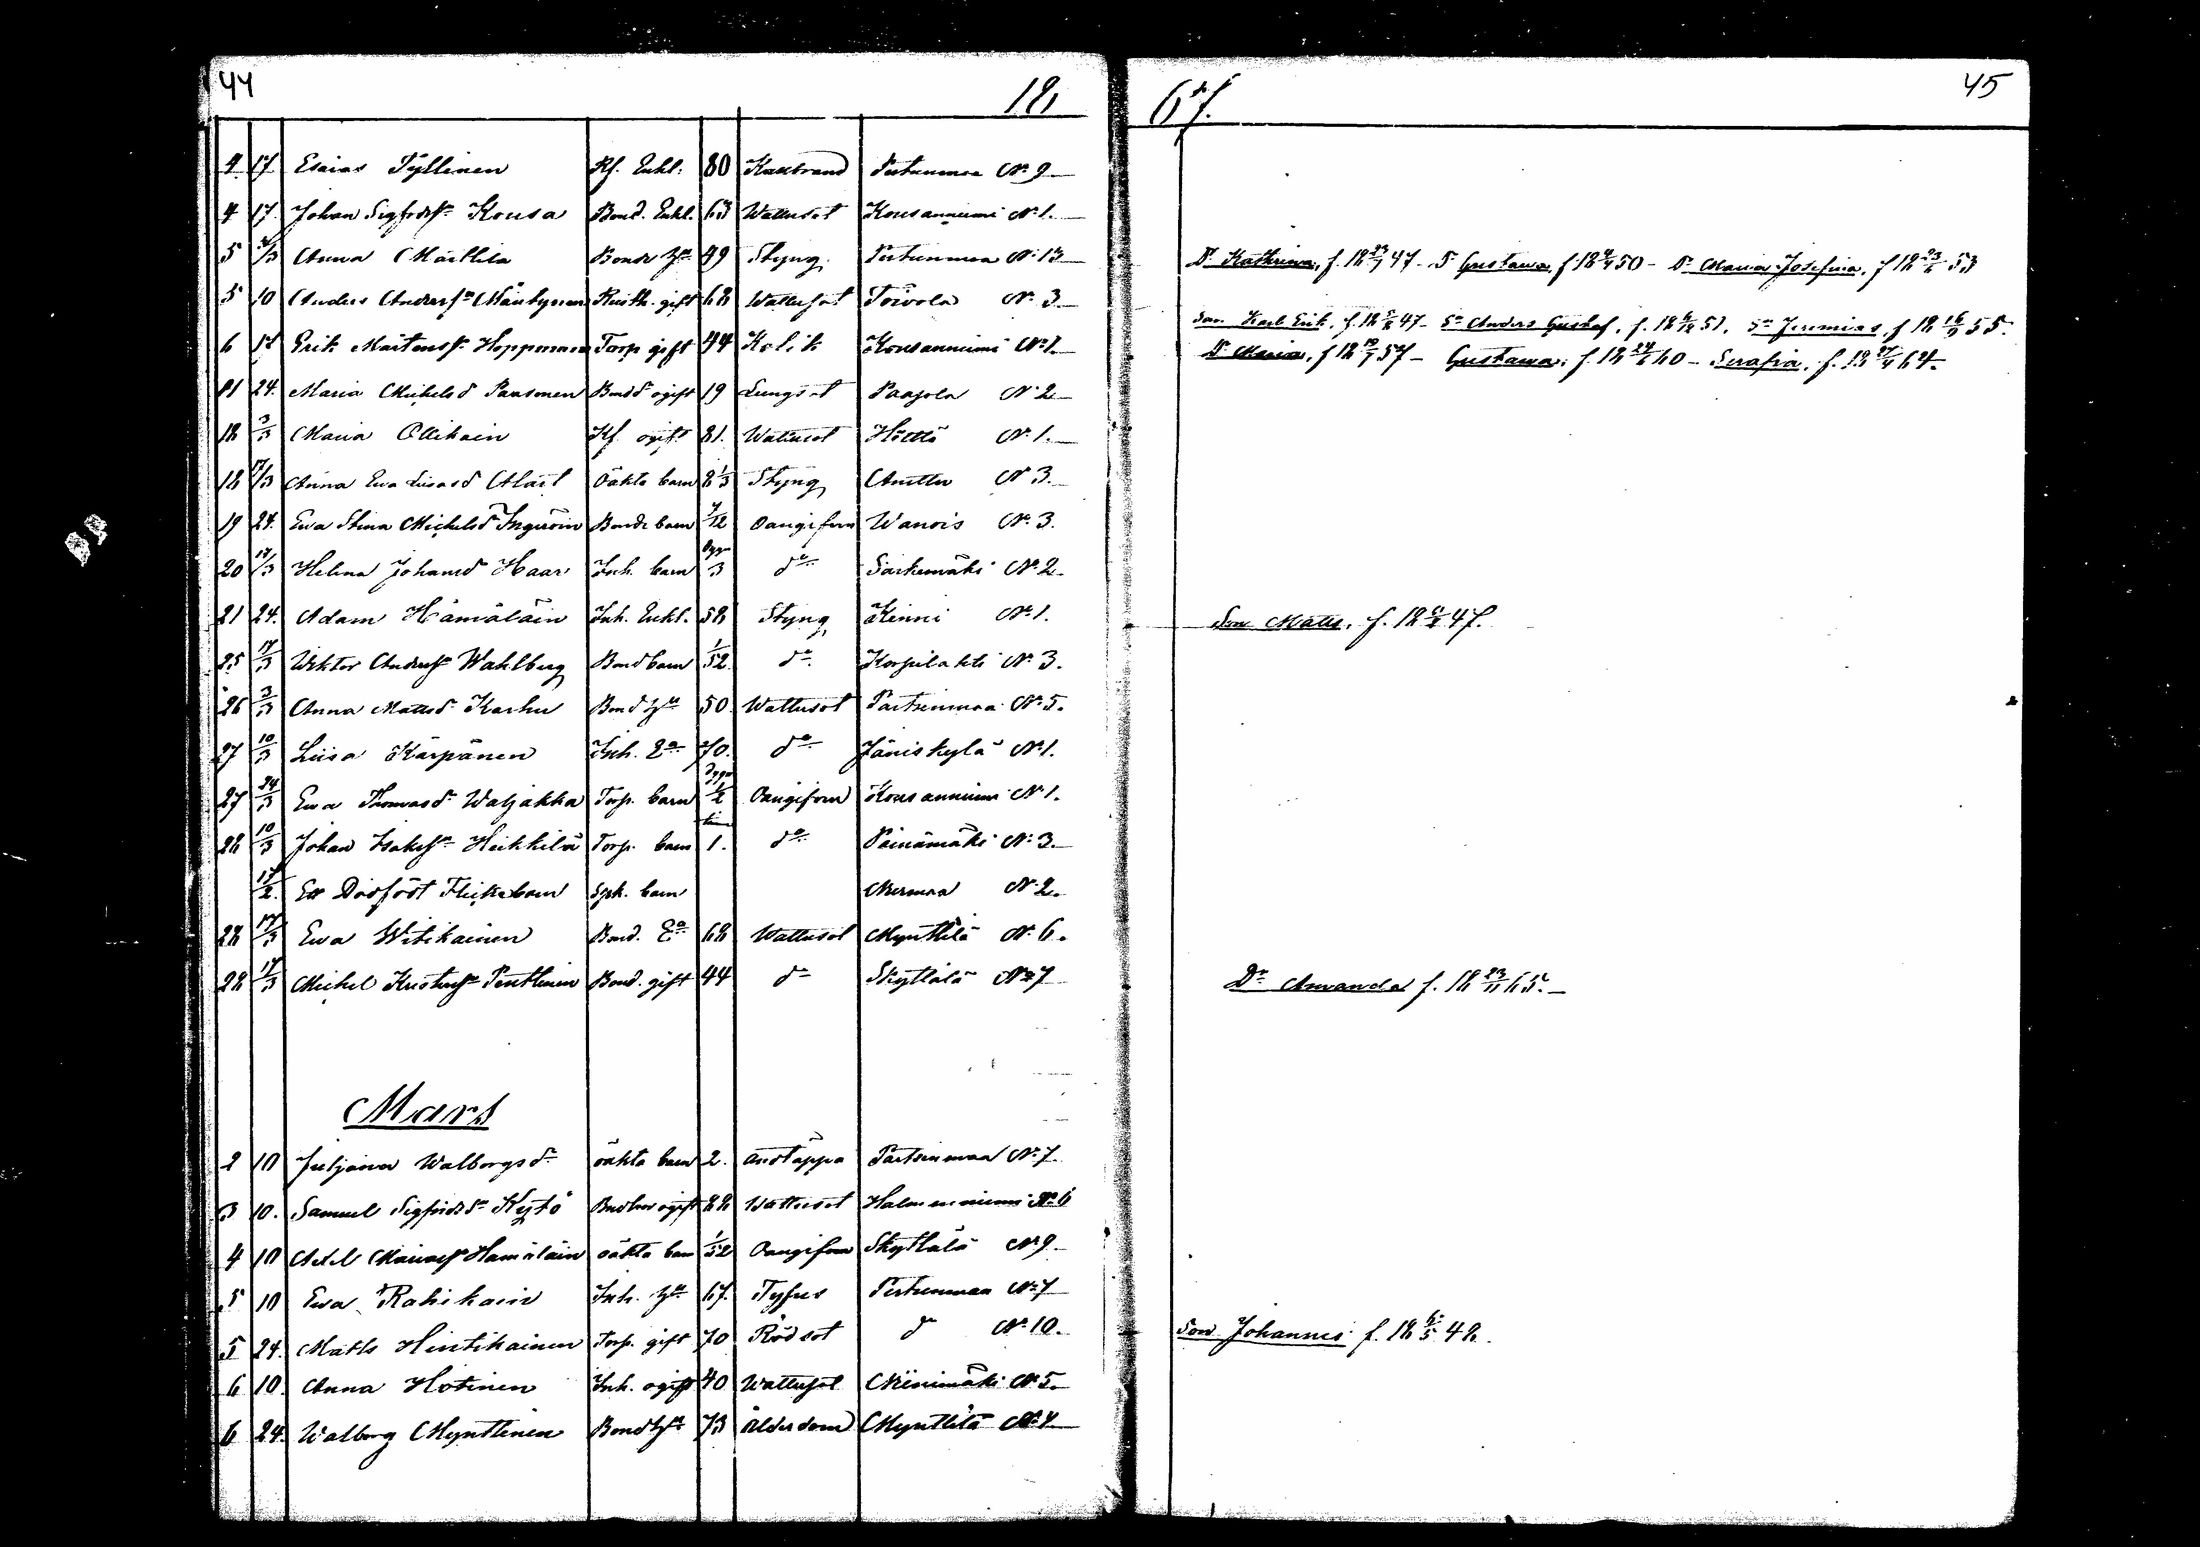 44
18
4 17 Esaias Tyllinen Kf. Enkl. 80 Kallbrand Pertunmaa N:o 9
4 17. Johan Sigfrdsn Kousa Bond. Enkl. 63 Wattusot Kousanniemi N:o 1.
5 3/3 Anna Märthla Bonde Hu 49 Styng Pertunmaa N:o 13
5 10 Anders Andersn Mäntynen Rusth. gift 68 Wattusot Toivola N:o 3
6 17 Erik Mårtenssn Hoppman Torp gift 44 Kolik Kousanniemi N:o 1.
11 24. Maria Michelsd Paasonen Bondd ogift 19 Lungsot Paajola N:o 2
18 3/3 Maria Ollikain Kf. ogift 81. Wattusot N:o 1.
18 17/3 Anna Eva Liisasd oäkta barn 2 1/3 Styng N:o 3.
19 24. Eva Stina Michelsd Ingeroin Bonde barn 7/12 Oangifven Wanois N:o 3.
20 17/3 Helena Johansd Haar Inh. barn Dygn 3 do Särkemäki N:o 2.
21 24. Adam Hämäläin Inh. Enkl. 58 Styng Kinni N:o 1.
25 17/3 Wiktor Andersn Wahlberg Bond barn 1/52 do Korpilahti N:o 3.
26 3/3 Anna Mattsd Karhu Bond Hu 50 Wattusot Pärtsenmaa N:o 5.
27 10/3 Liisa Kärpänen Inh. Ea 70. do Jäniskylä N:o 1.
27 24/3 Eva Thomasd Waljakka Torp. barn Dygn 1/2 Oangifven Kousanniemi N:o 1.
28 10/3 Johan Isaksn Heikkilä Torp. barn tim 1. do Päinämäki N:o 3.
17/2. Ett Dödfödt Flickebarn Spk. barn Nermaa N:o 2.
28 17/3 Eva Witikainen Bond. Ea 68 Wattusot Mynttilä N:o 6.
28 17/3 Michel Kristersn Penttinen Bond. gift 44 do Skyttälä N:o 7
Mars
2 10 Juljana Walborgsd oäkta barn 2. andtäppa Pärtsenmaa N:o 7.
3 10. Samuel Sigfridsn Kyтö ogift 28 Wattusot Halmeniemi N:o 6
4 10 Axel Mariasn Hämäläin oäkta barn 1/52 Oangifven Skyttälä N:o 9
5 10 Eva Rahikain Inh. Hu 67. Tyfus Pertunmaa N:o 7
5 24. Matts Hintikainen Torp. gift 70 Rödsot do N:o 10.
6 10. Anna Hotinen Inh. ogift 40 Wattusot Niinimäki N:o 5.
6 24. Walborg Mynttinen Bond Hu 73 Ålderdom Mynttilä N:o 4
67.
45
Dr Kathrina, f. 18 23/7 47 - Dr Gustawa, f 18 50 - Dr Maria Josefina, f 18 53
Son Karl Erik, f. 18 47 - Sn Anders Gustaf, f. 18 51. Sn Jeremias, f 18 16/9 55.
Dr Maria, f 18 57 - Gustawa, f. 18 60 - Serafia, f. 18 64.
Son Matts, f. 18 47.
Dr Amanda f. 18 23/11 65.
Son Johannes f. 18 6/5 48.